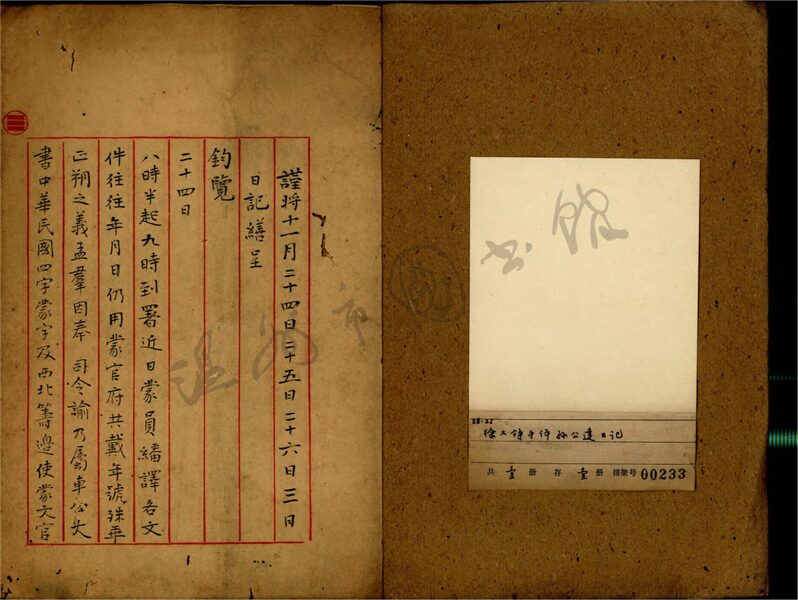 謹将十一月二十四日二十五日二十六日三日
日記繕呈
鈞覽
二十四日
八時半起九時到署近日蒙員繙譯各文
件往往年月日仍用蒙官府共戴年號殊乖
正朔之義孟羣因奉 司令諭乃屬車公大
書中華民國四字蒙字及西北籌邊使蒙文官
溫州市圖書館
日记
共壹册 存壹册 排架号 00233